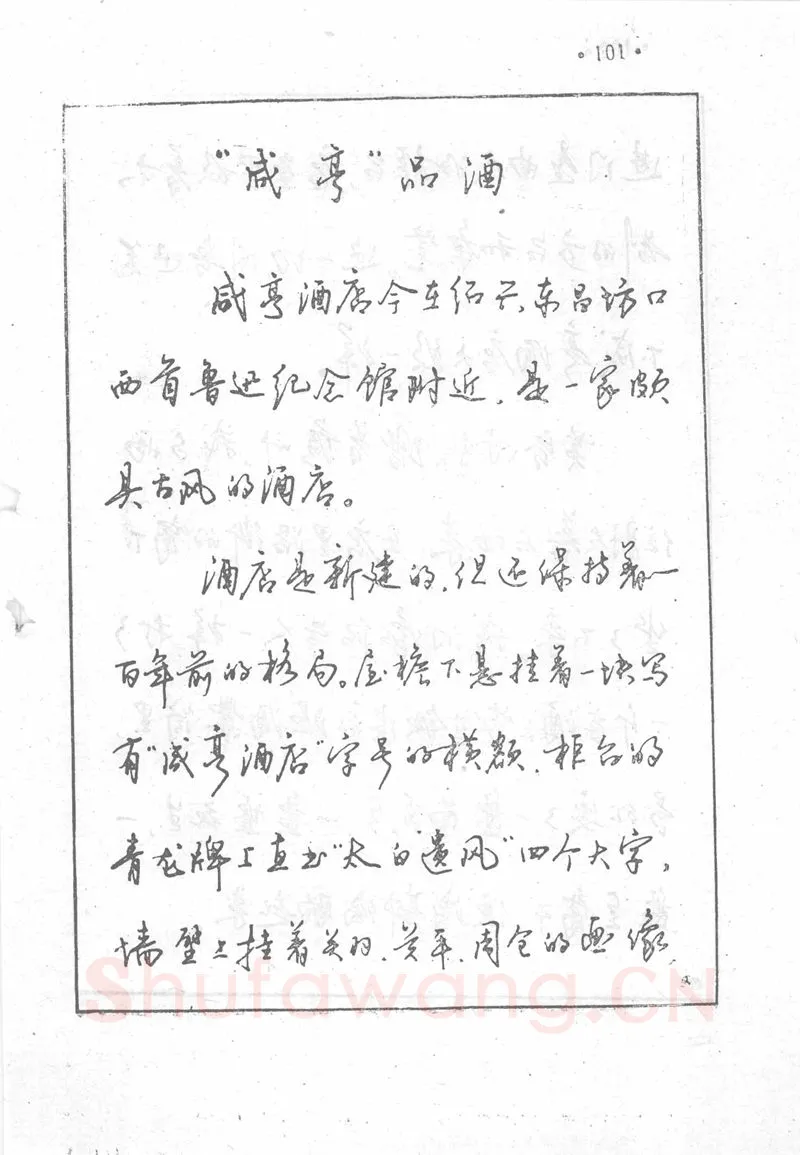 ·101·
“咸亨”品酒
咸亨酒店今在绍兴东昌坊口
西首鲁迅纪念馆附近，是一家颇
具古风的酒店。
酒店是新建的，但还保持着一
百年前的格局。屋檐下悬挂着一块写
有“咸亨酒店”字号的横额，柜台的
青龙牌上直书“太白遗风”四个大字，
墙壁上挂着关羽、关平、周仓的画像，
Shufawang.CN